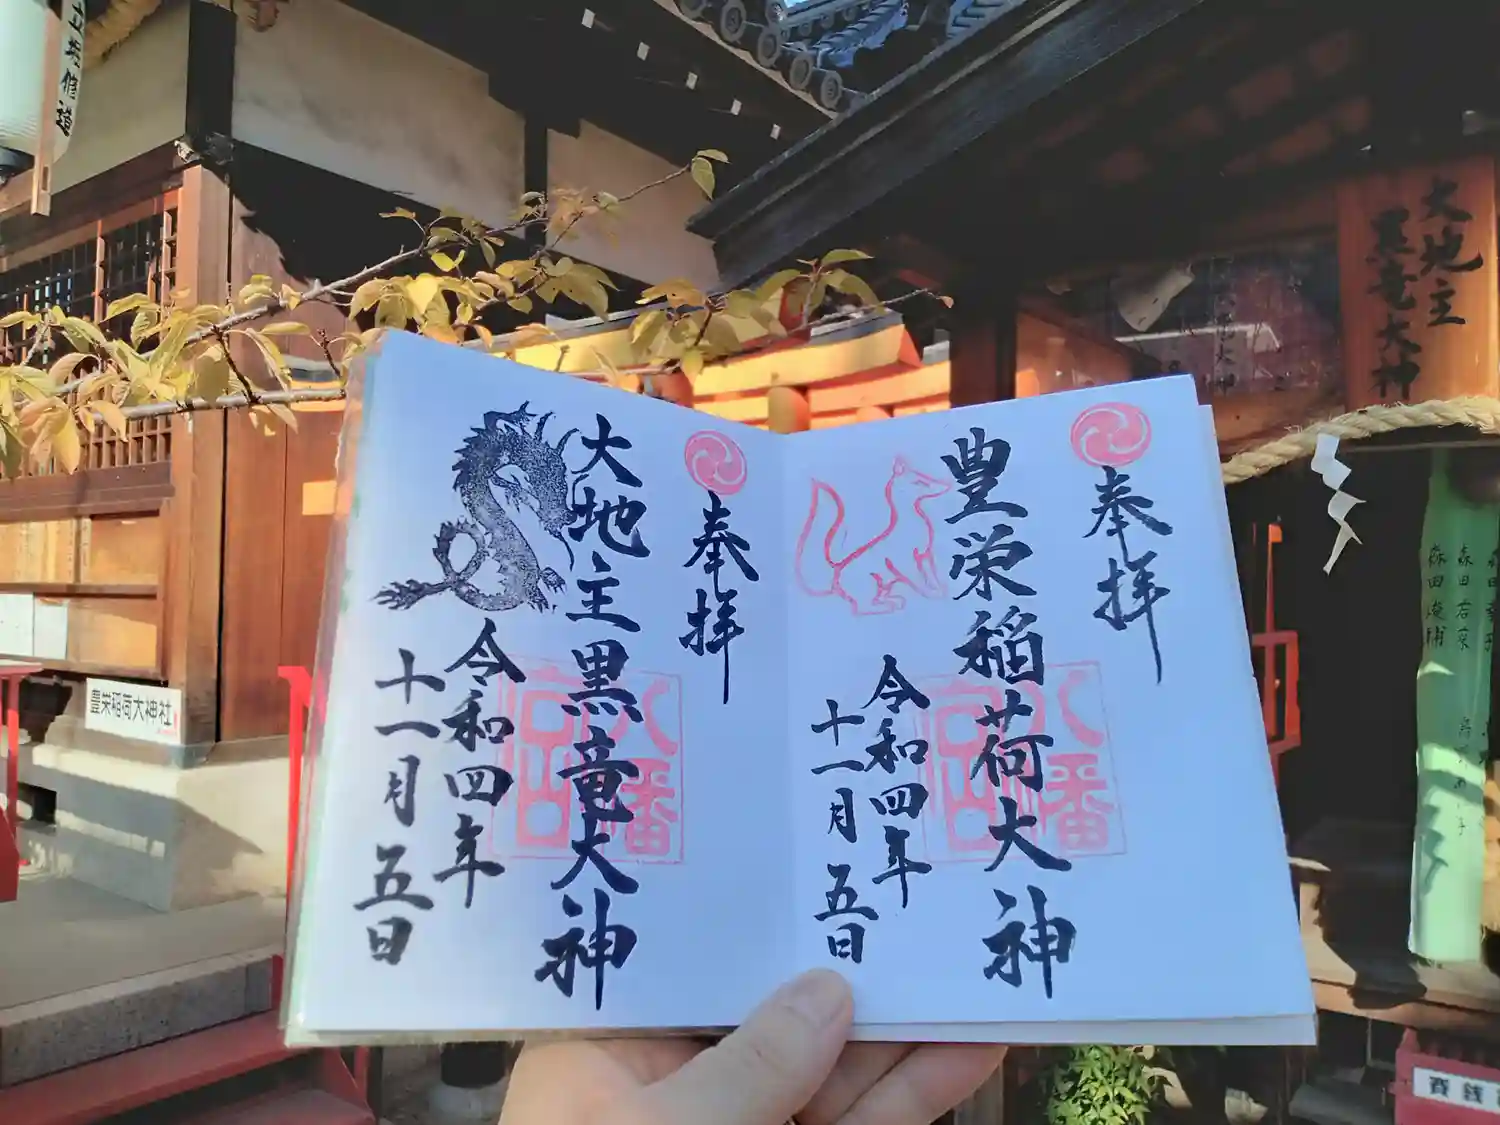 奉拝
豊栄稲荷大神
令和四年
十一月五日
八幡宮
奉拝
大地主黒竜大神
令和四年
十一月五日
八幡宮
大地主
黒竜大神
豊栄稲荷大神社
賽銭